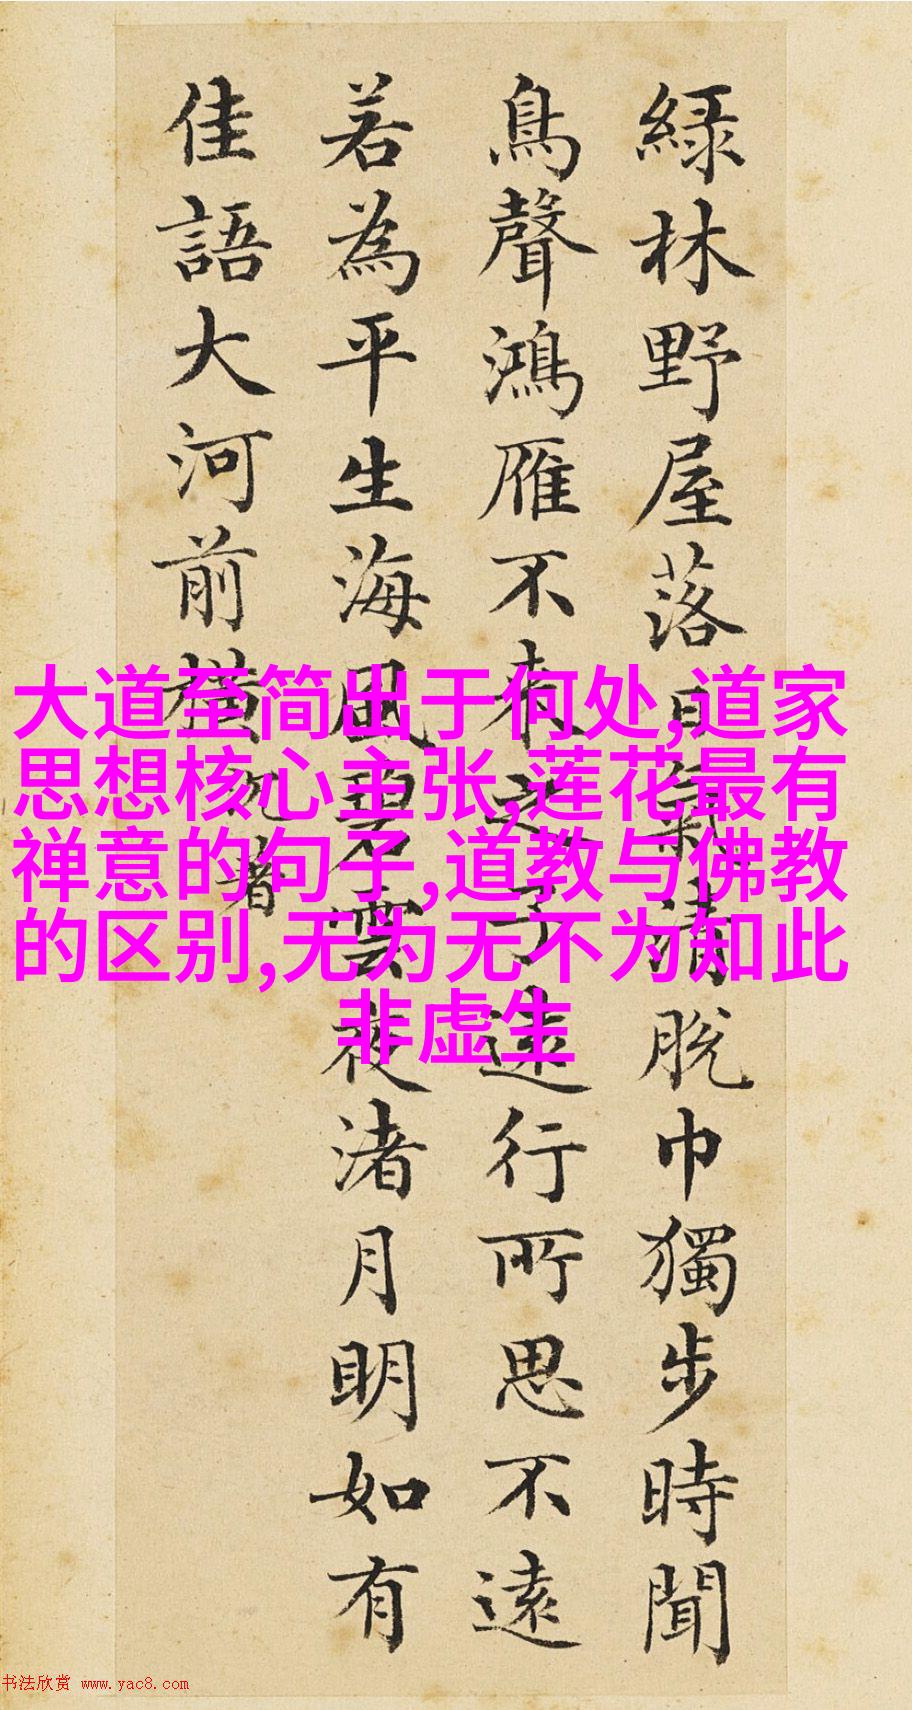 綠林野屋落日氣清脫巾獨步時聞
鳥聲鴻雁不來之子遠行所思不遠
若為平生海風碧雲夜渚月明如有
佳語大河前橫
大道至简出于何处,道家
思想核心主张,莲花最有
禅意的句子,道教与佛教
的区别,无为无不为知此
非虚生
书法欣赏 www.yac8.com